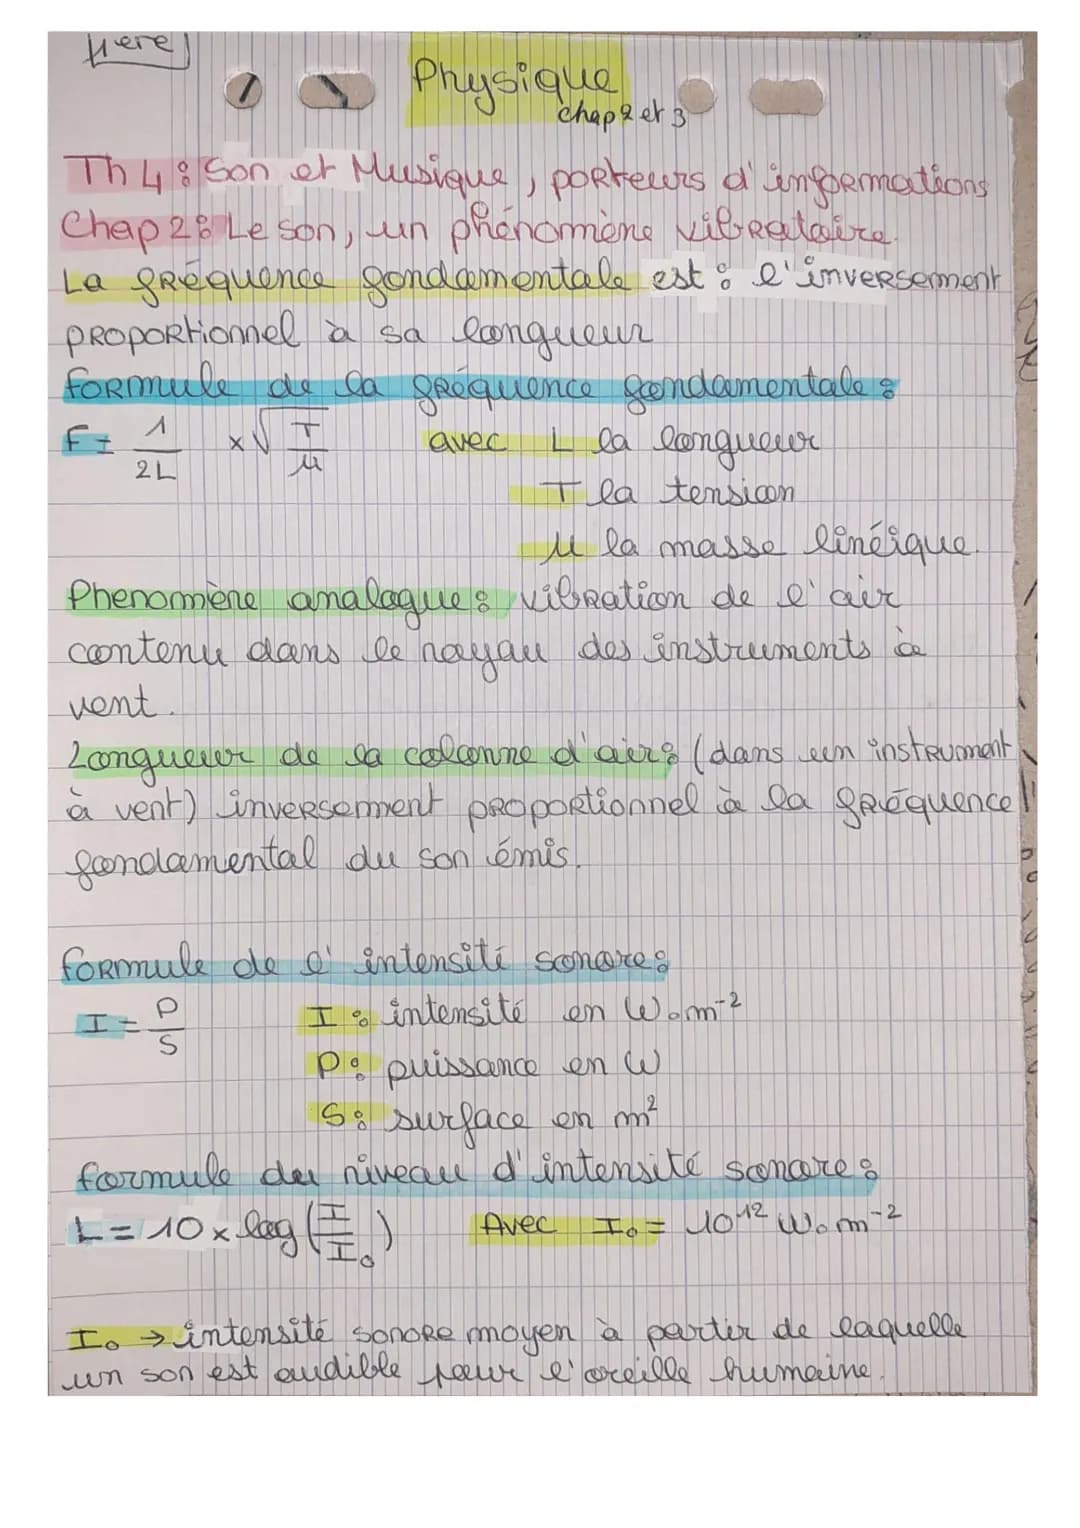 1ère
Physique
chap 2 et 3
Th 4 : Son et Musique, porteurs d'informations
Chap 2 : Le son, un phénomène vibratoire.
La fréquence fondamentale est : l'inversement
proportionnel à sa longueur
formule de la fréquence fondamentale :
F = 1/2L × √(T/μ) avec L la longueur
T la tension
μ la masse linéique.
Phenomène analogue : vibration de l'air
contenu dans le noyau des instruments à
vent.
Longueur de la colonne d'air : (dans un instrument
à vent) inversement proportionnel à la fréquence
fondamental du son émis.
formule de l'intensité sonore :
I = P/S I : intensité en W.m⁻²
P : puissance en W
S : surface en m²
formule du niveau d'intensité sonore :
L = 10 × log (I/I₀) Avec I₀ = 10⁻¹² W.m⁻²
I₀ → intensité sonore moyen à partir de laquelle
un son est audible pour l'oreille humaine.